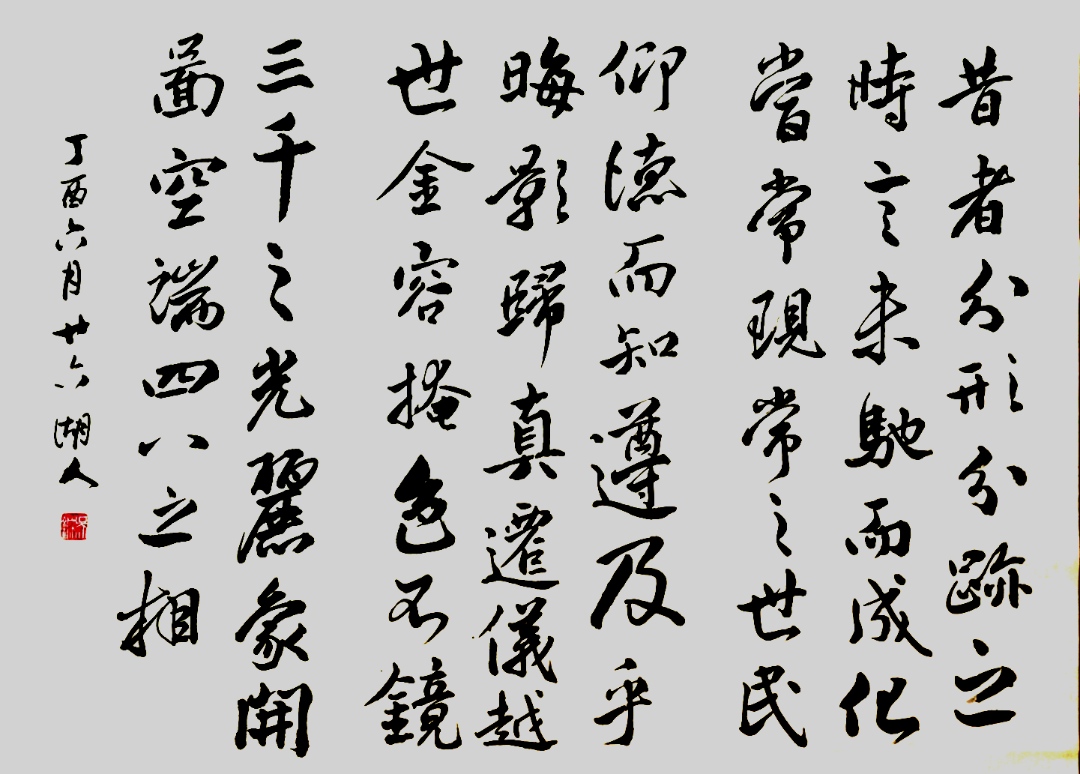 昔者分形分跡之
時言未馳而成化
當常現常之世民
仰德而知遵及乎
晦影歸真遷儀越
世金容掩色不鏡
三千之光麗象開
圖空端四八之相
丁酉六月廿六湖人